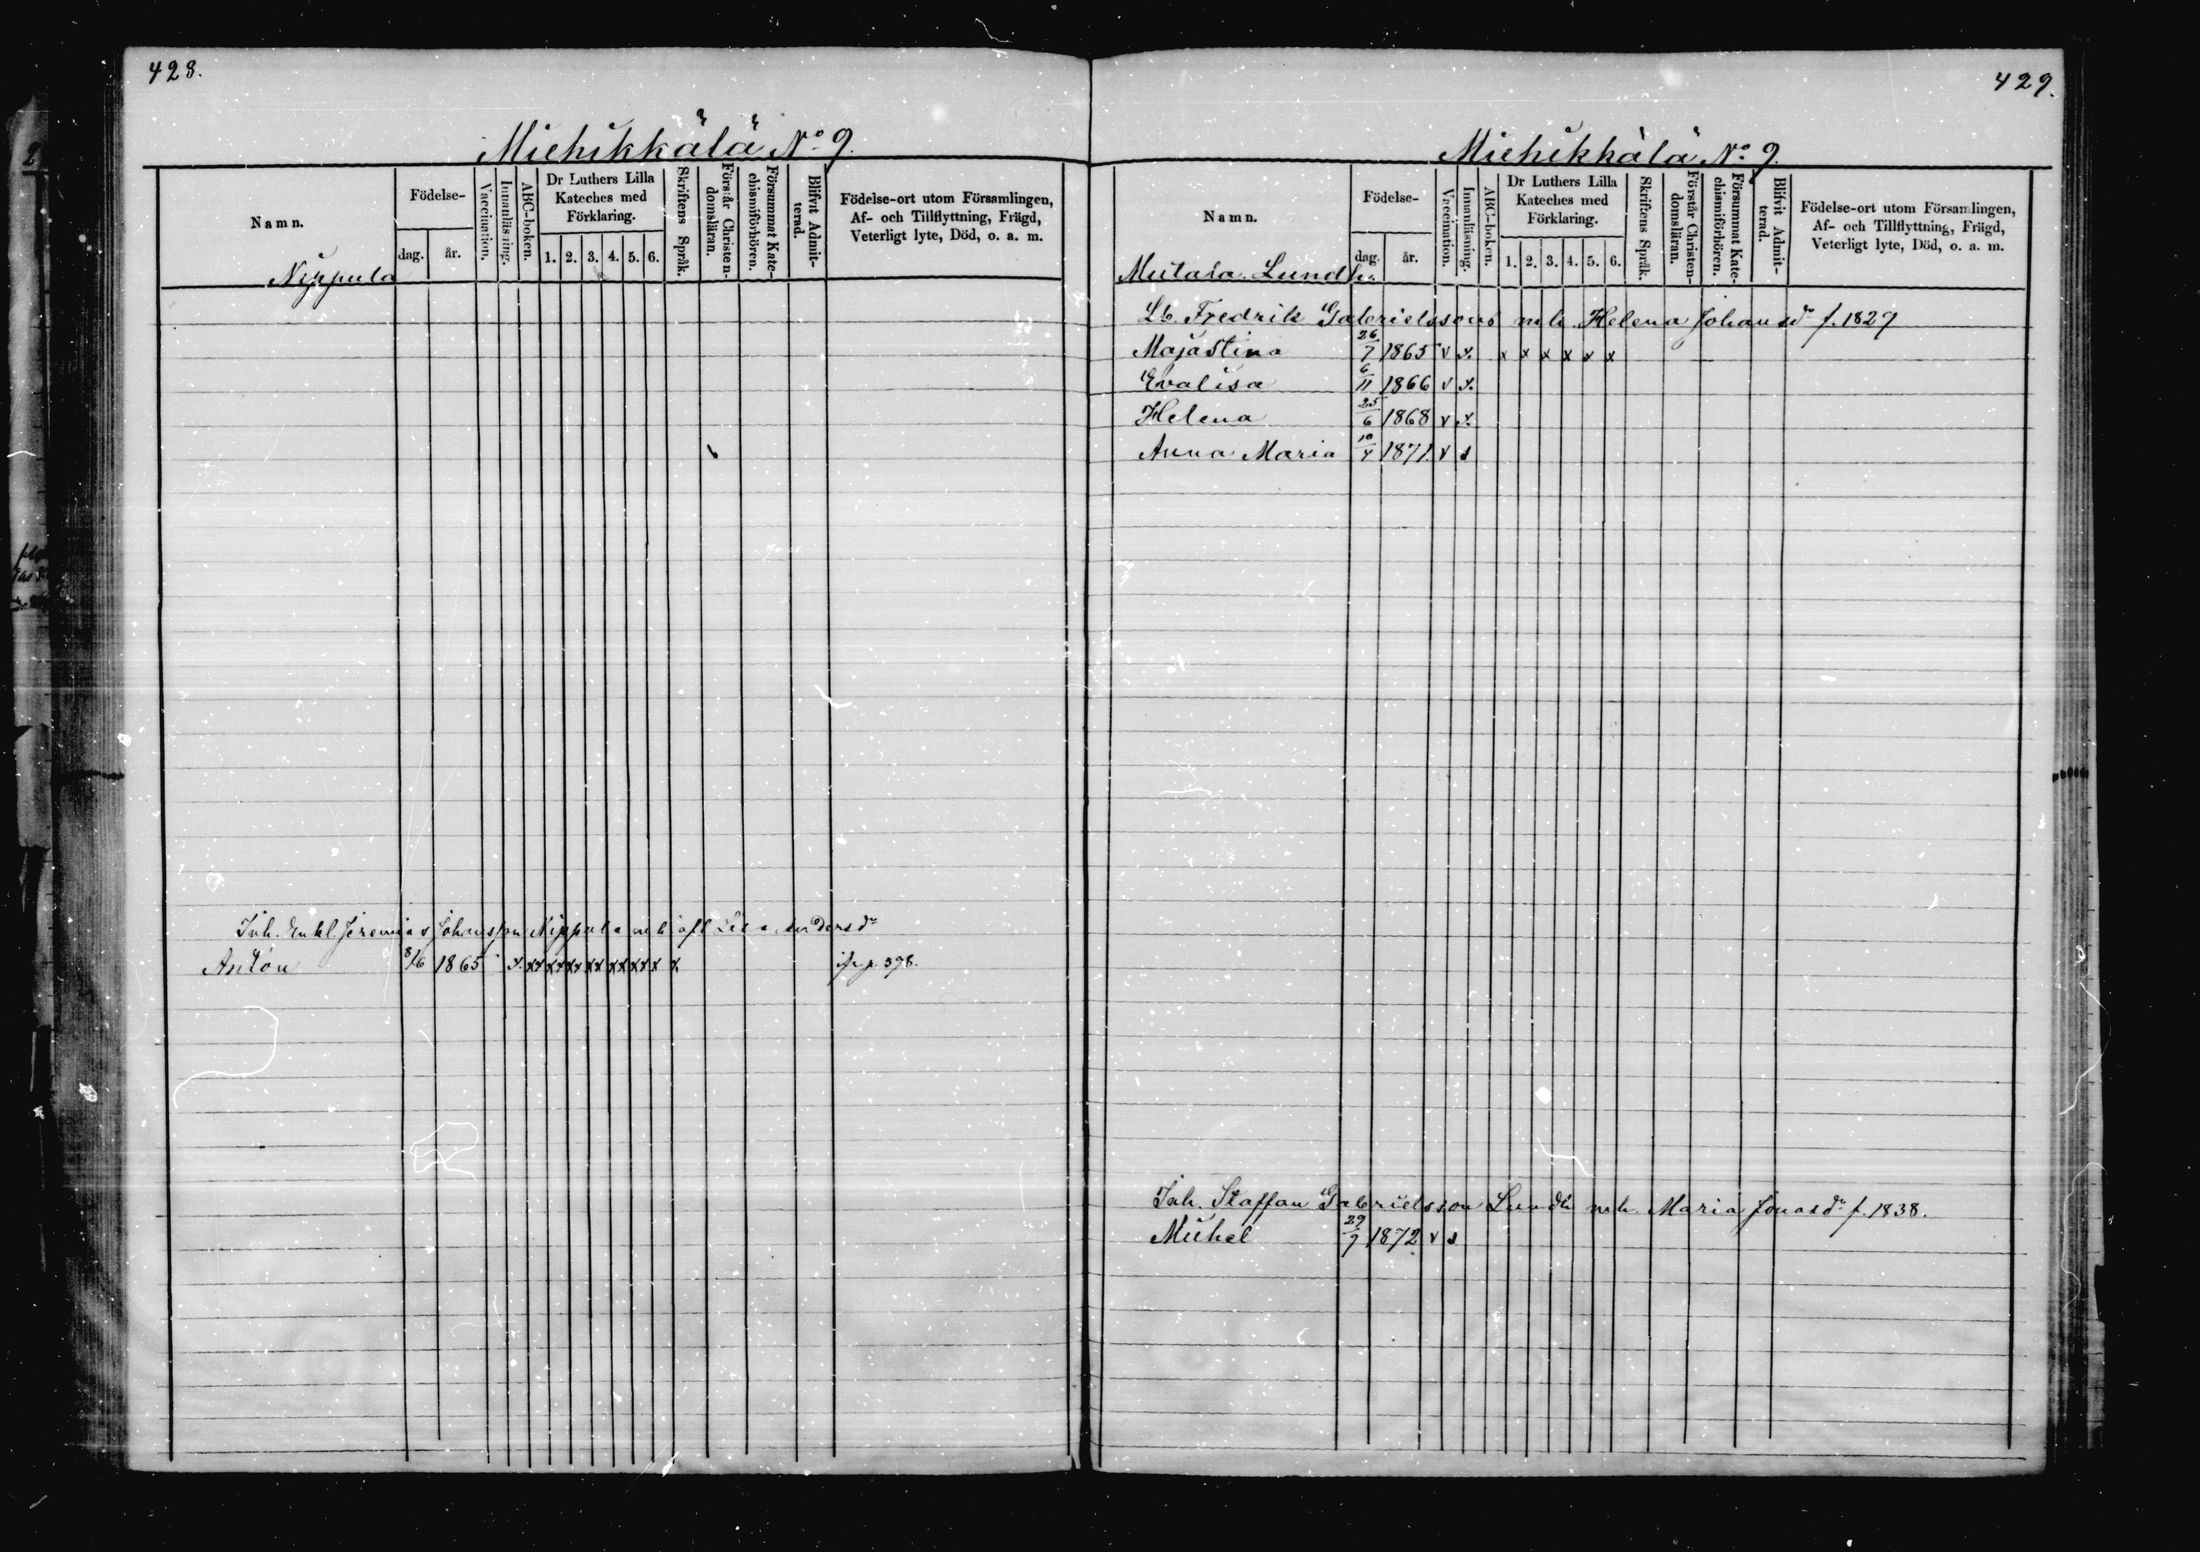 428.
Miehikkälä No 9.
Namn.
Födelse-
dag.
år.
Vaccination.
Innanläsning.
ABC-boken.
Dr Luthers Lilla
Kateches med
Förklaring.
1. 2. 3. 4. 5. 6.
Skriftens Språk.
Förstår Christen-
domsläran.
Försummat Kate-
chismiförhören.
Blifvit Admit-
terad.
Födelse-ort utom Församlingen,
Af- och Tillflyttning, Frägd,
Veterligt lyte, Död, o. a. m.
Nippula
Inh. Enkl Jeremias Johansson Nippula m h afl Lisa Andersdr
Anton 8/6 1865 x. xx xx xx xx xx xx x x p. 398.
429.
Miehikkälä No 9.
Namn.
Födelse-
dag.
år.
Vaccination.
Innanläsning.
ABC-boken.
Dr Luthers Lilla
Kateches med
Förklaring.
1. 2. 3. 4. 5. 6.
Skriftens Språk.
Förstår Christen-
domsläran.
Försummat Kate-
chismiförhören.
Blifvit Admit-
terad.
Födelse-ort utom Församlingen,
Af- och Tillflyttning, Frägd,
Veterligt lyte, Död, o. a. m.
Mutasa. Lundh.
Lb. Fredrik Gabrielssons m h. Helena Johansdr f. 1829
Majastina 26/7 1865 v x. x x x x x x
Evalisa 6/11 1866 v x.
Helena 25/6 1868 v x.
Anna Maria 10/4 1871. v s
Inh. Staffan Gabrielsson Lundh m h. Maria Jonasdr f. 1838.
Mickel 29/9 1872 v s.